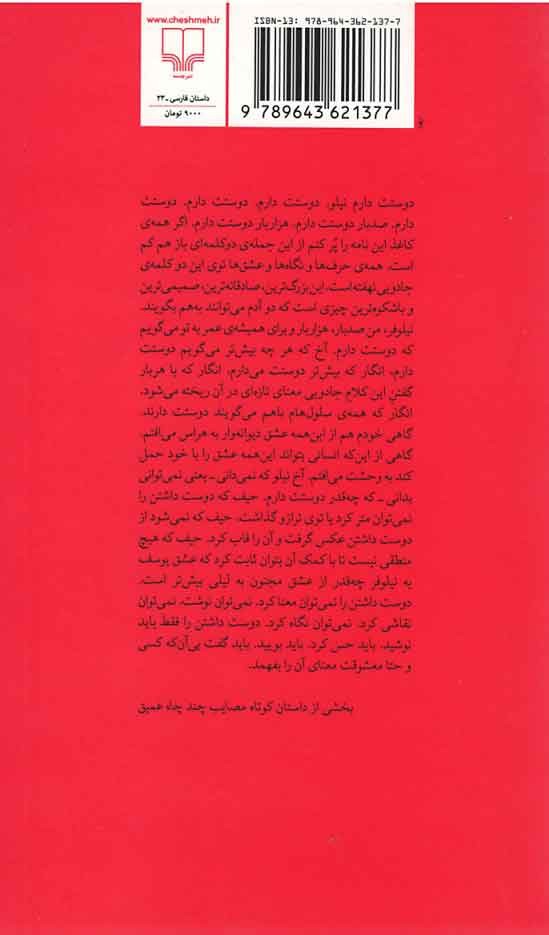 www.cheshmeh.ir
نشرچشمه
داستان فارسی ـ ۲۳
۹۰۰۰ تومان
ISBN-13: 978-964-362-137-7
9 789643 621377
دوستت دارم نیلو. دوستت دارم. دوستت دارم. دوستت
دارم. صدبار دوستت دارم. هزاربار دوستت دارم. اگر همه‌ی
کاغذ این نامه را پُر کنم از این جمله‌ی دوکلمه‌ای باز هم کم
است. همه‌ی حرف‌ها و نگاه‌ها و عشق‌ها توی این دو کلمه‌ی
جادویی نهفته است. این بزرگ‌ترین، صادقانه‌ترین، صمیمی‌ترین
و باشکوه‌ترین چیزی است که دو آدم می‌توانند به‌هم بگویند.
نیلوفر، من صدبار، هزاربار و برای همیشه‌ی عمر به تو می‌گویم
که دوستت دارم. آخ که هر چه بیش‌تر می‌گویم دوستت
دارم، انگار که بیش‌تر دوستت می‌دارم، انگار که با هربار
گفتن این کلام جادویی معنای تازه‌ای در آن ریخته می‌شود.
انگار که همه‌ی سلول‌هام باهم می‌گویند دوستت دارند.
گاهی خودم هم از این‌همه عشق دیوانه‌وار به هراس می‌افتم.
گاهی از این‌که انسانی بتواند این‌همه عشق را با خود حمل
کند به وحشت می‌افتم. آخ نیلو که نمی‌دانی ـ یعنی نمی‌توانی
بدانی ـ که چه‌قدر دوستت دارم. حیف که دوست داشتن را
نمی‌توان متر کرد یا توی ترازو گذاشت. حیف که نمی‌شود از
دوست داشتن عکس گرفت و آن را قاب کرد. حیف که هیچ
منطقی نیست تا با کمک آن بتوان ثابت کرد که عشق یوسف
به نیلوفر چه‌قدر از عشق مجنون به لیلی بیش‌تر است.
دوست داشتن را نمی‌توان معنا کرد. نمی‌توان نوشت. نمی‌توان
نقاشی کرد. نمی‌توان نگاه کرد. دوست داشتن را فقط باید
نوشید. باید حس کرد. باید بویید. باید گفت بی‌آن‌که کسی
و حتا معشوقت معنای آن را بفهمد.
بخشی از داستان کوتاه مصایب چند چاه عمیق